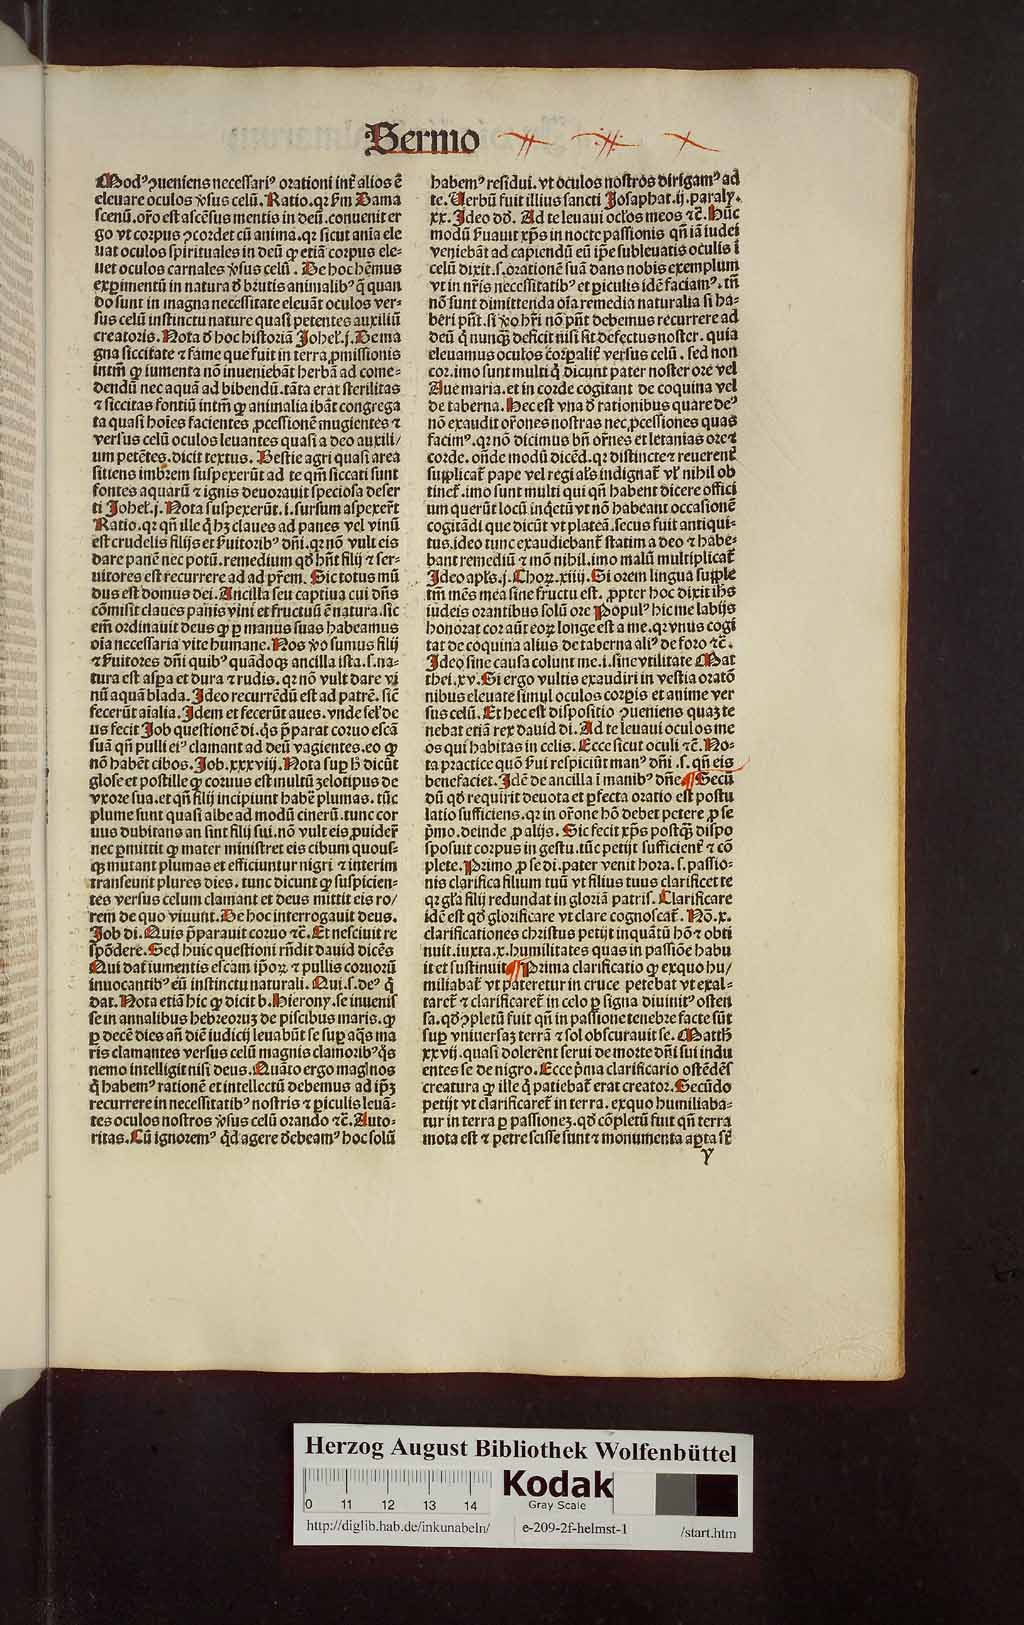 Sermo
Modꝰ ꝯueniens necessariꝰ orationi int̄ alios ē
eleuare oculos v̓sus celū. Ratio. qꝛ s̓m Dama
scenū. or̄o est ascēsus mentis in deū. conuenit er
go vt corpus ꝯcordet cū anima. qꝛ sicut aīa ele
uat oculos spirituales in deū ꝙ etiā corpus ele⸗
uet oculos carnales v̓sus celū. De hoc hēmus
exꝑimentū in natura d̓ brutis animalibꝰ q̄ quan
do sunt in magna necessitate eleuāt oculos ver⸗
sus celū instinctu nature quasi petentes auxiliū
creatoris. Nota d̓ hoc historiā Johel̓. j. De ma
gna siccitate ⁊ fame que fuit in terra ꝓmissionis
intm̄ ꝙ iumenta nō inueniebāt herbā ad come⸗
dendū nec aquā ad bibendū. tāta erat sterilitas
⁊ siccitas fontiū intm̄ ꝙ animalia ibāt congrega
ta quasi hoīes facientes ꝓcessionē mugientes ⁊
versus celū oculos leuantes quasi a deo auxili/
um petētes. dicit textus. Bestie agri quasi area
sitiens imbrem suspexerūt ad te qm̄ siccati sunt
fontes aquarū ⁊ ignis deuorauit speciosa deser
ti Johel̓. j. Nota suspexerūt. i. sursum aspexer̄t
Ratio. qꝛ qn̄ ille q̄ hꝫ claues ad panes vel vinū
est crudelis filijs et s̓uitoribꝰ dn̄i. qꝛ nō vult eis
dare panē nec potū. remedium qd̓ hn̄t filij ⁊ ser⸗
uitores est recurrere ad ad pr̄em. Sic totus mū
dus est domus dei. Ancilla seu captiua cui dn̄s
cōmisit claues panis vini et fructuū ē natura. sic
em̄ ordinauit deus ꝙ ꝑ manus suas habeamus
oīa necessaria vite humane. Nos v̓o sumus filij
⁊ s̓uitores dn̄i quibꝰ quādoqꝫ ancilla ista. s. na⸗
tura est asꝑa et dura ⁊ rudis. qꝛ nō vult dare vi
nū aquā blada. Ideo recurrēdū est ad patrē. sic̄
fecerūt aīalia. Idem et fecerūt aues. vnde sel̓ de
us fecit Job questionē di. q̓s p̄parat coruo escā
suā qn̄ pulli eiꝰ clamant ad deū vagientes. eo ꝙ
nō habēt cibos. Job. xxxviij. Nota suꝑ h̓ dicūt
glose et postille ꝙ coruus est multū zelotipus de
vxore sua. et qn̄ filij incipiunt habē plumas. tūc
plume sunt quasi albe ad modū cinerū. tunc cor
uus dubitans an sint filij sui. nō vult eis ꝓuider̄
nec ꝑmittit ꝙ mater ministret eis cibum quous⸗
qꝫ mutant plumas et efficiuntur nigri ⁊ interim
transeunt plures dies. tunc dicunt ꝙ suspicien⸗
tes versus celum clamant et deus mittit eis ro/
rem de quo viuunt. De hoc interrogauit deus.
Job di. Quis p̄parauit coruo ⁊c̄. Et nesciuit re
spōdere. Sed huic questioni rn̄dit dauid dicēs
Qui dat iumentis escam ip̄oꝝ ⁊ pullis coruorū
inuocantibꝰ eū instinctu naturali. Qui. s. deꝰ q̄
dat. Nota etiā hic ꝙ dicit b. Hierony. se inuenis
se in annalibus hebreoruꝫ de piscibus maris. ꝙ
ꝑ decē dies an̄ diē iudicij leuabūt se suꝑ aq̄s ma
ris clamantes versus celū magnis clamoribꝰ q̄s
nemo intelligit nisi deus. Quāto ergo magl nos
q̄ habemꝰ rationē et intellectū debemus ad ip̄ꝫ
recurrere in necessitatibꝰ nostris ⁊ ꝑiculis leuā⸗
tes oculos nostros v̓sus celū orando ⁊c̄. Auto⸗
ritas. Cū ignoremꝰ q̄d agere d̓beamꝰ hoc solū
habemꝰ residui. vt oculos nostros dirigamꝰ ad
te. Uerbū fuit illius sancti Josaphat. ij. paralꝑ.
xx. Ideo dd̓. Ad te leuaui ocl̓os meos ⁊c̄. Hūc
modū s̓uauit xp̄s in nocte passionis qn̄ iā iudei
veniebāt ad capiendū eū ip̄e subleuatis oculis ī
celū dixit. s. orationē suā dans nobis exemplum
vt in nr̄is necessitatibꝰ et ꝑiculis idē faciamꝰ. tn̄
nō sunt dimittenda oīa remedia naturalia si ha⸗
beri pn̄t. si v̓o hr̄i nō pn̄t debemus recurrere ad
deū q̄ nunqꝫ deficit nisi sit defectus noster. quia
eleuamus oculos corꝑalit̄ versus celū. sed non
cor. imo sunt multi q̄ dicunt pater noster ore vel
Aue maria. et in corde cogitant de coquina vel
de taberna. Hec est vna d̓ rationibus quare deꝰ
nō exaudit or̄ones nostras nec ꝓcessiones quas
facimꝰ. qꝛ nō dicimus bn̄ or̄nes et letanias ore ⁊
corde. on̄de modū dicēd. qꝛ distincte ⁊ reuerent̄
supplicat̄ pape vel regi al̓s indignat̄ vl̓ nihil ob
tinet̄. imo sunt multi qui qn̄ habent dicere offici
um querūt locū inq̓etū vt nō habeant occasionē
cogitādi que dicūt vt plateā. secus fuit antiqui⸗
tus. ideo tunc exaudiebant̄ statim a deo ⁊ habe⸗
bant remediū ⁊ mō nihil. imo malū multiplicat̄
Ideo apl̓s. j. Choꝝ. xiiij. Si orem lingua supple
tm̄ mēs mea sine fructu est. ꝓpter hoc dixit ihs̄
iudeis orantibus solū ore Populꝰ hic me labijs
honorat cor aūt eoꝝ longe est a me. qꝛ vnus cogi
tat de coquina alius de taberna aliꝰ de foro ⁊c̄.
Ideo sine causa colunt me. i. sine vtilitate Mat
thei. xv. Si ergo vultis exaudiri in vestia oratō
nibus eleuate simul oculos corꝑis et anime ver
sus celū. Et hec est dispositio ꝯueniens quaꝫ te
nebat etiā rex dauid di. Ad te leuaui oculos me
os qui habitas in celis. Ecce sicut oculi ⁊c̄. No⸗
ta practice quō s̓ui respiciūt manꝰ dn̄i. s. qn̄ eis
benefaciet. Idē de ancilla ī manibꝰ dn̄e ¶ Secū
dū qd̓ requirit deuota et ꝑfecta oratio est postu
latio sufficiens. qꝛ in or̄one hō debet petere ꝓ se
p̄mo. deinde ꝓ alijs. Sic fecit xp̄s postqꝫ dispo
sposuit corpus in gestu. tūc petijt sufficient̄ ⁊ cō
plete. Primo ꝓ se di. pater venit hora. s. passio⸗
nis clarifica filium tuū vt filius tuus clarificet te
qꝛ gl̓a filij redundat in gloriā patris. Clarificare
idē est qd̓ glorificare vt clare cognoscat̄. Nō. x.
clarificationes christus petijt inquātū hō ⁊ obti
nuit. iuxta. x. humilitates quas in passiōe habu
it et sustinuit ¶ Prima clarificatio ꝙ exquo hu/
miliabat̄ vt pateretur in cruce petebat vt exal⸗
taret̄ ⁊ clarificaret̄ in celo ꝑ signa diuinitꝰ osten
sa. qd̓ ꝯpletū fuit qn̄ in passione tenebre facte sūt
suꝑ vniuersaꝫ terrā ⁊ sol obscurauit se. Matth̓
xxvij. quasi dolerent serui de morte dn̄i sui indu
entes se de nigro. Ecce p̄ma clarificatio ostēdēs
creatura ꝙ ille q̄ patiebat̄ erat creator. Secūdo
petijt vt clarificaret̄ in terra. exquo humiliaba⸗
tur in terra ꝑ passioneꝫ. qd̓ cōpletū fuit qn̄ terra
mota est ⁊ petre scisse sunt ⁊ monumenta aꝑta st̄
y
Herzog August Bibliothek Wolfenbüttel
0 11 12 13 14
Kodak
Gray Scale
http://diglib.hab.de/inkunabeln/ e-209-2f-helmst-1 /start.htm